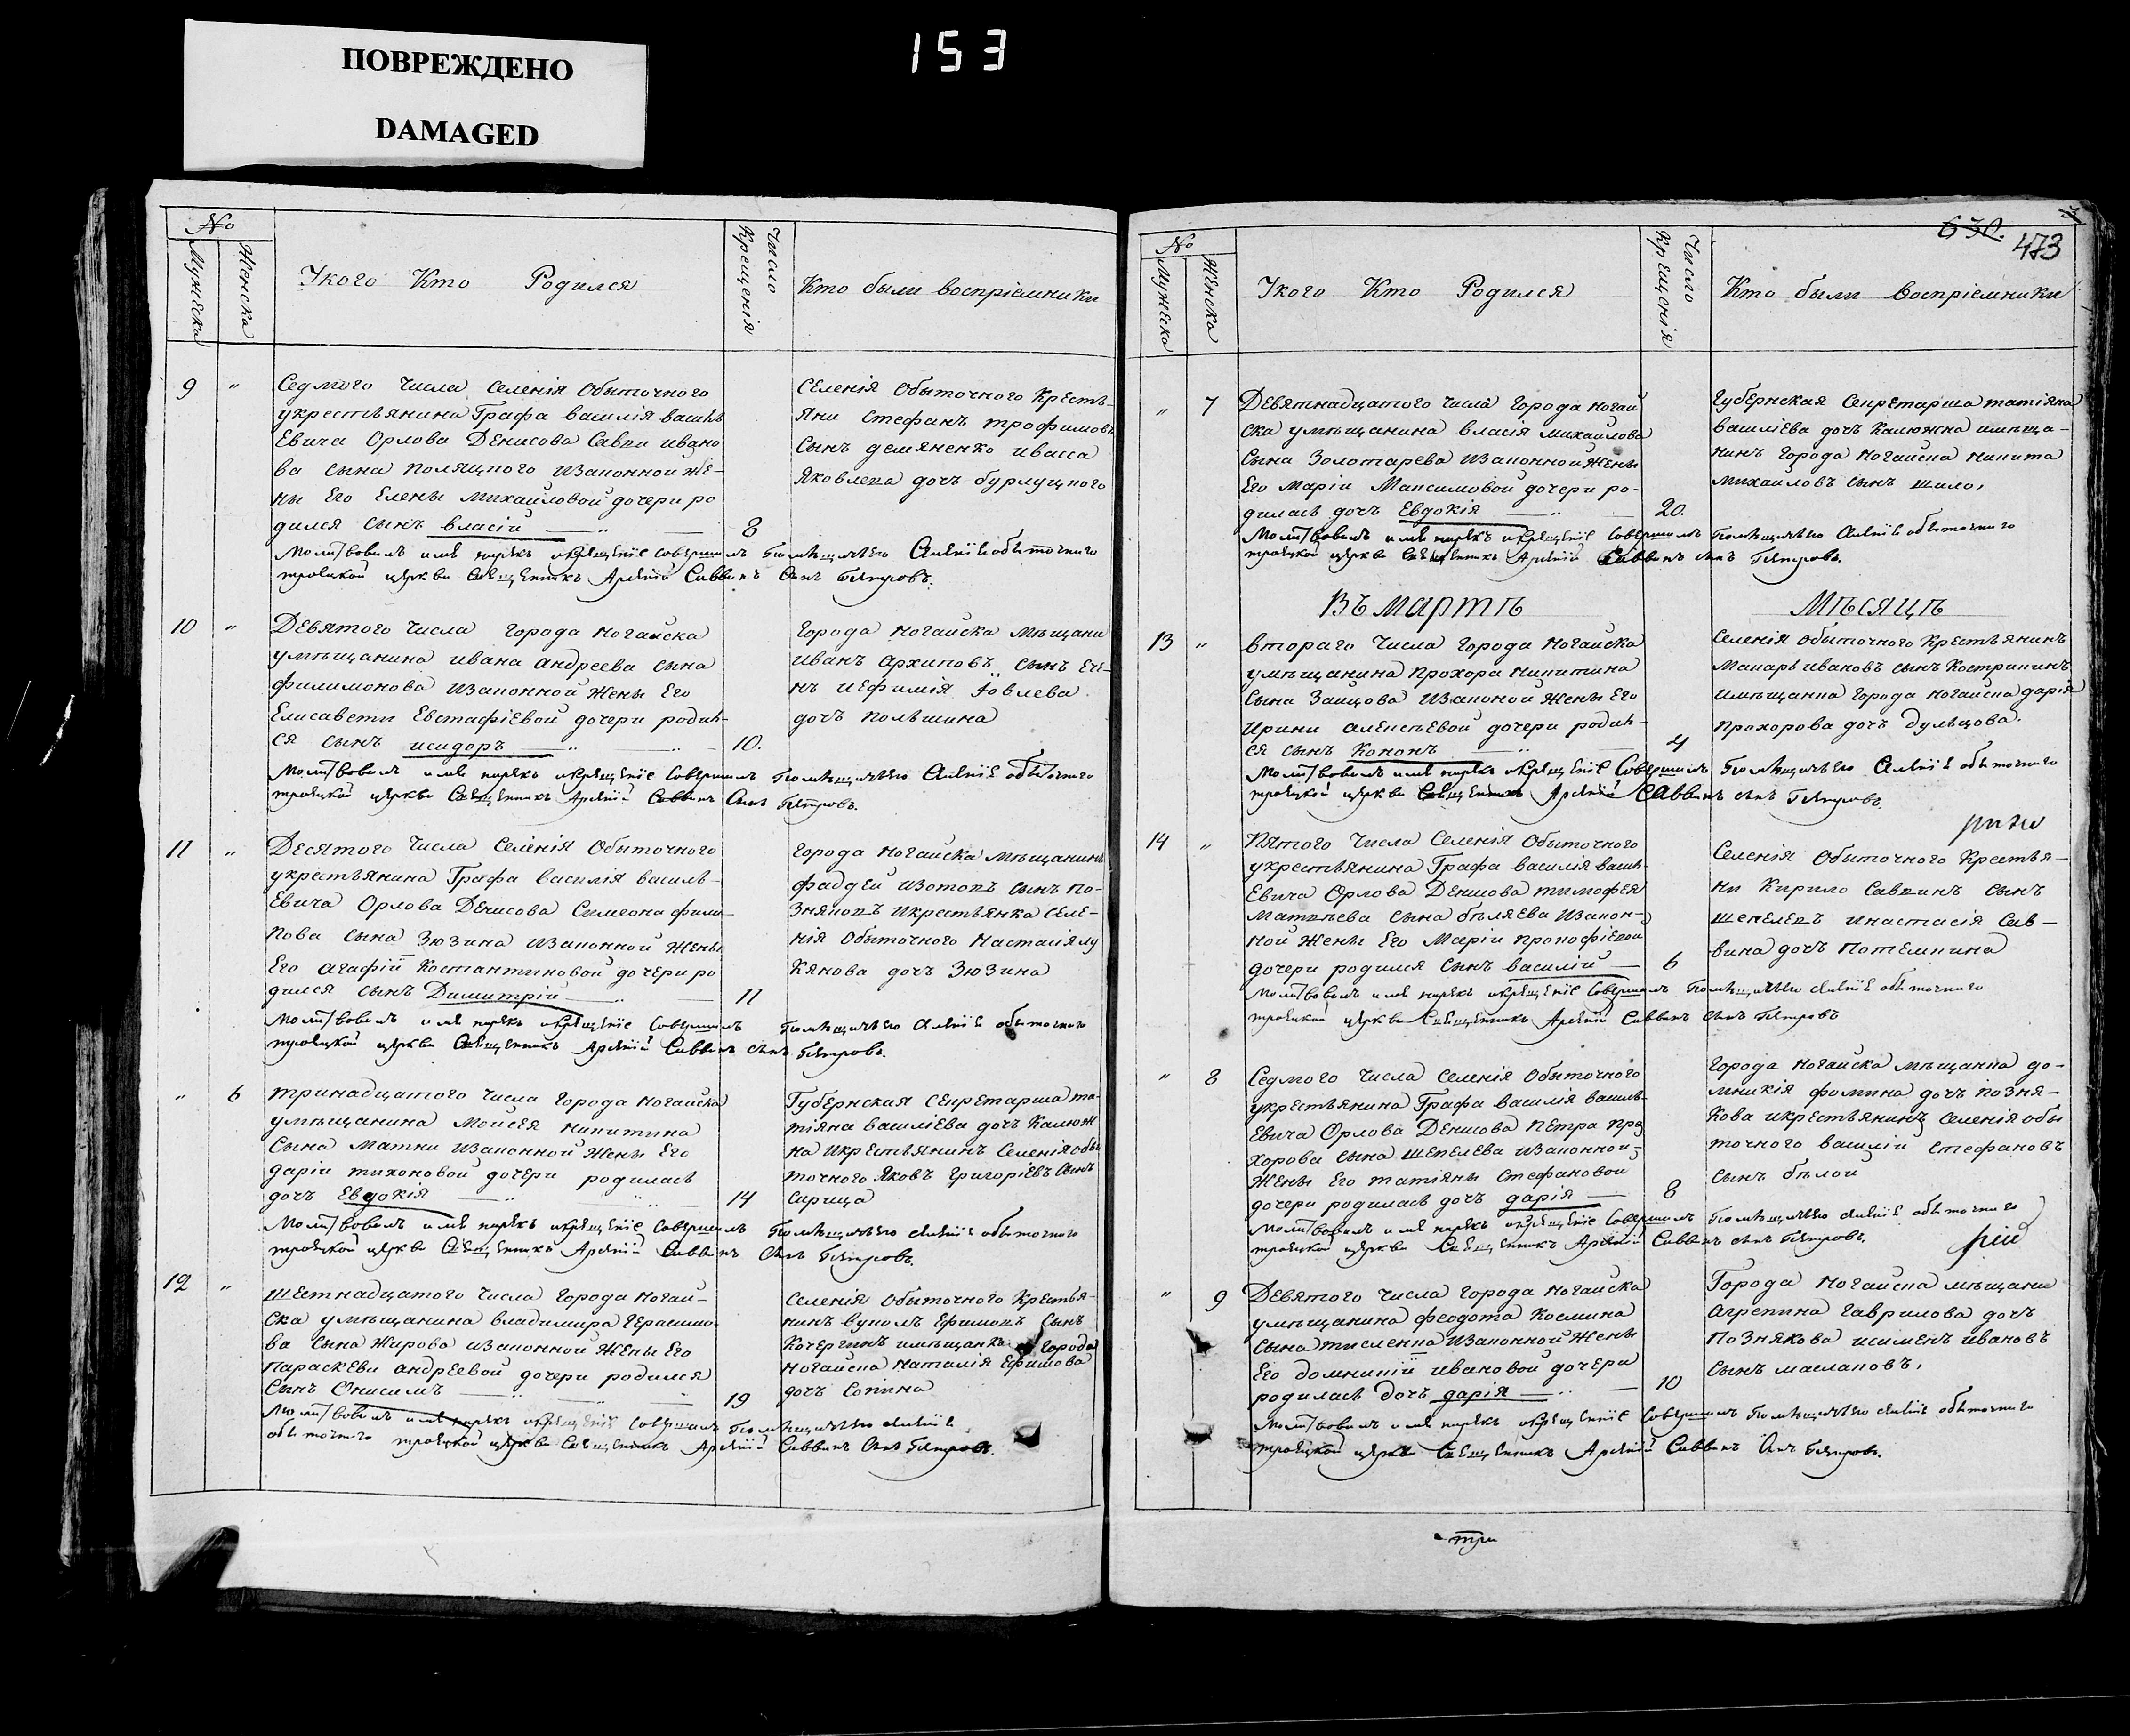 ПОВРЕЖДЕНО
DAMAGED
153
№
Мужеска
Женска
Укого Кто Родился
Число Крещенія
Кто были воспріемники
9 "
Седмого числа селенія Обыточного
укрестьянина Графа василія василь
Евича Орлова Денисова Савви ивано
ва сына полящного изаконной же-
ны Его Елены михаиловой дочери ро
дился сынъ власій
8
Селенія Обыточного Кресть-
яни стефанъ трофимовъ
сынъ демяненко ивасса
яковлева дочъ бурлуцного
Молитвовалъ имя нарекъ икрещеніе совершилъ помѣщичьего селенія обыточного
троецкой церкви Священникъ Арсеній Саввинъ сынъ Петровъ.
10 "
Девятого числа города ногайска
умѣщанина ивана андреева сына
филимонова изаконной жены Его
Елисаветы Евстафіевой дочери родил-
ся сынъ исидоръ
10.
города ногайска мѣщани
иванъ архиповъ сынъ
иефимія Іовлева
дочъ польшина
Молитвовалъ имя нарекъ икрещеніе совершилъ помѣщичьего селенія обыточного
троецкой церкви Священникъ Арсеній Саввинъ сынъ Петровъ.
11 "
Десятого числа селенія Обыточного
укрестьянина Графа василія василь-
Евича Орлова Денисова Симеона фили-
пова сына Зюзина изаконной жены
Его агафіи Костантиновой дочери ро
дился сынъ Димитрій
11
города ногайска мѣщанинъ
фаддей изотовъ сынъ по-
зняковъ икрестьянка селе-
нія Обыточного настасія лу
кянова дочъ Зюзина
Молитвовалъ имя нарекъ икрещеніе совершилъ помѣщичьего селенія обыточного
троецкой церкви Священникъ Арсеній Саввинъ сынъ Петровъ.
" 6
тринадцатого числа города ногайска
умѣщанина моисея никитина
сына матни изаконной жены Его
даріи тихоновой дочери родилась
дочъ Евдокія
14
Губернская секретарша та-
тіяна василіева дочъ калюж
на икрестьянинъ селенія обы
точного яковъ григоріевъ сынъ
сирица
Молитвовалъ имя нарекъ икрещеніе совершилъ помѣщичьего селенія обыточного
троецкой церкви Священникъ Арсеній Саввинъ сынъ Петровъ.
12 "
шестнадцатого числа города ногай-
ска умѣщанина владимира герасимо-
ва сына жирова изаконной жены Его
параскеви андреевой дочери родился
сынъ Онисимъ
19
селенія Обыточного крестья-
нинъ вуколъ Ефимовъ сынъ
кочергинъ имѣщанка города
ногайска наталія Ефимова
дочъ сопина
Молитвовалъ имя нарекъ икрещеніе совершилъ помѣщичьего селенія
обыточного троецкой церкви Священникъ Арсеній Саввинъ сынъ Петровъ.
630.
473
№
Мужеска
Женска
Укого Кто Родился
Число Крещенія
Кто были воспріемники
" 7
Девятнадцатого числа города ногай
ска умѣщанина власія михаилова
сына Золотарева изаконной жены
Его маріи максимовой дочери ро-
дилась дочъ Евдокія
20.
губернская секретарша татіяна
василіева дочъ калюжна имѣща-
нинъ города ногайска никита
михаиловъ сынъ шило,
Молитвовалъ имя нарекъ икрещеніе совершилъ помѣщичьего селенія обыточного
троецкой церкви Священникъ Арсеній Саввинъ сынъ Петровъ.
Въ мартѣ Мѣсяцѣ
13 "
втораго числа города ногайска
умѣщанина прохора никитина
сына Заицова изаконой жены Его
ирини алексѣевой дочери родил-
ся сынъ Кононъ
4
селенія обыточного крестьянинъ
макаръ ивановъ сынъ костракинъ
имѣщанка города ногайска дарія
прохорова дочъ дульцова.
Молитвовалъ имя нарекъ икрещеніе совершилъ помѣщичьего селенія обыточного
троецкой церкви Священникъ Арсеній Саввинъ сынъ Петровъ.
14 "
пятого числа селенія Обыточного
укрестьянина графа василія василь-
Евича Орлова Денисова тимофея
матвѣева сына бѣляева изакон-
ной жены Его маріи прокофіевой
дочери родился сынъ василій
6
Селенія Обыточного крестья-
ни кирило саввинъ сынъ
шепелевъ инастасія сав-
вина дочъ потемкина
Молитвовалъ имя нарекъ икрещеніе совершилъ помѣщичьего селенія обыточного
троецкой церкви Священникъ Арсеній Саввинъ сынъ Петровъ
" 8
Седмого числа селенія Обыточного
укрестьянина Графа василія василь-
Евича Орлова Денисова петра про
хорова сына шепелева изаконной
жены Его татіяны стефановой
дочери родилась дочъ дарія
8
города ногайска мѣщанка до-
мникія фомина дочъ позня-
кова икрестьянинъ селенія обы
точного василій стефановъ
сынъ бѣлой
Молитвовалъ имя нарекъ икрещеніе совершилъ помѣщичьего селенія обыточного
троецкой церкви Священникъ Арсеній Саввинъ сынъ Петровъ.
" 9
Девятого числа города ногайска
умѣщанина феодота космина
сына тисленка изаконной жены
Его домникіи ивановой дочери
родилась дочъ дарія
10
города ногайска мѣщане
агрепина гаврилова дочъ
познякова исименъ ивановъ
сынъ маслаковъ,
Молитвовалъ имя нарекъ икрещеніе совершилъ помѣщичьего селенія обыточного
троецкой церкви Священникъ Арсеній Саввинъ сынъ Петровъ.
три